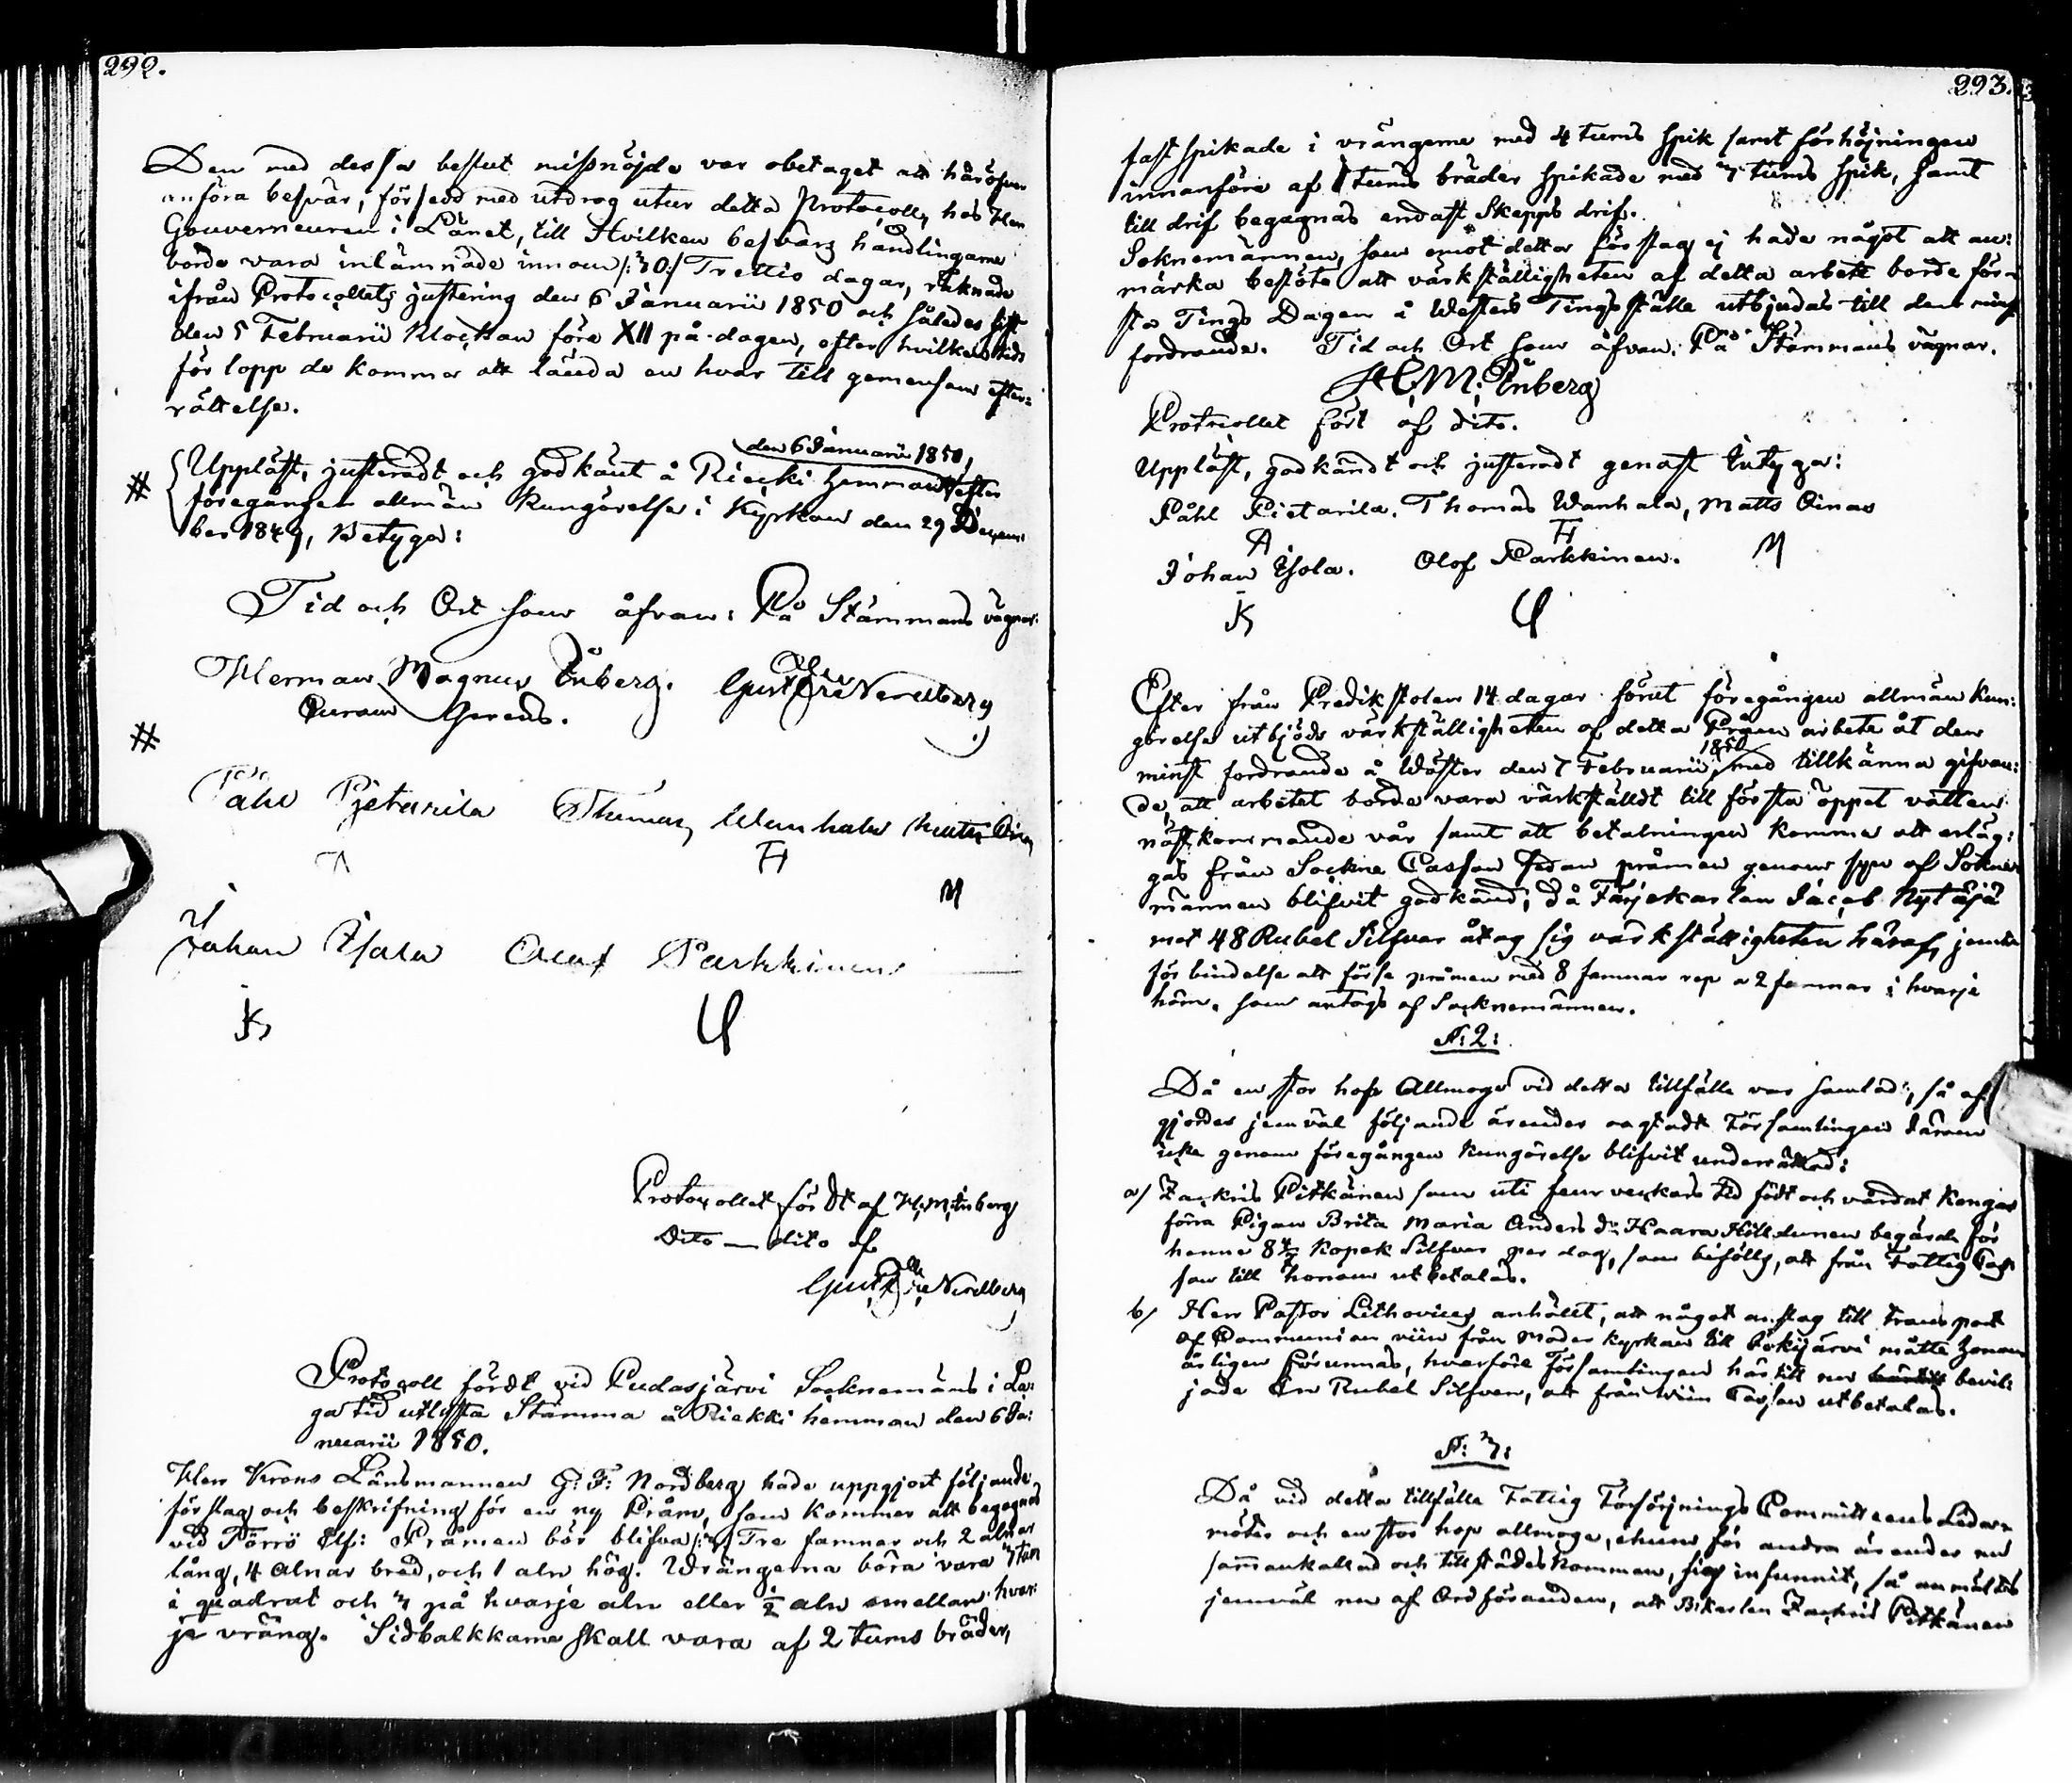 292.
Den med dessa beslut missnöjde var obetaget att häröfver
anföra besvär, försedd med utdrag utur detta Protocoll, hos Herr
Gouverneuren i Länet, till Hvilken besvärs handlingarne
borde vara inlämnade innom /:30:/ Trettio dagar, räknade
ifrån Protocollets justering den 6 Januarii 1850 och således sist
den 5 Februarii Klockan före XII på dagen, efter hvilken tids
för lopp de kommer att lända en hvar till gemensam efter-
rättelse.
den 6 Januarii 1850,
# Uppläst, justeradt och godkänt å Riecki hemman efter
föregången allmän Kungörelse i Kyrkan den 29 Decem:
ber 1849, Betyga:
Tid och Ort som åfvan: På Stämmans vägnar:
Herman Magnus Enberg. Gust Nordberg
Curam Gerens.
#
Påhl Pietarila Thomas Wanhala Matts Oinas
TH
M
Johan Isola Olof Parkkinen
Protocollet fördt af H.M. Enberg
Dito — dito af
Gust Nordberg
Protocoll fördt vid Pudasjärvi Socknemäns i La:
ga tid utlysta Stämma å Riekki hemman den 6 Ja:
nuarii 1850.
Herr Krono Länsmannen G: F: Nordberg hade uppgjort följande
förslag och beskrifning för en ny Pråm, som kommer att begagnas
vid Törrö Elf: Pråmen bör blifva /:3:/ Tre famnar och 2 alnar
lång, 4 alnar bred, och 1 aln hög. Wrängerna böra vara 3 tum
i quadrat och 3 på hvarje aln eller ½ aln emellan hvar:
je vräng. Sidbalkkarna skall vara af 2 tums bräder,
293.
fast spikade i vrängerne med 4 tums spik samt förhöjningen
innanföre af 1 tums bräder spikade med 3 tums spik, samt
till drif begagnas endast Skepps drif.
Soknemännen, som emot detta förslag ej hade något att an:
märka beslöto att värkställigheten af detta arbete borde för-
sta Tings Dagen å Westers Tingsställe utbjudas till den minst
fordrande. Tid och Ort som åfvan: På Stämmans vägnar.
H.M. Enberg
Protocollet fört af dito.
Uppläst, godkändt och justeradt genast Intyga:
Påhl Pietarila. Thomas Wanhala, Matts Oinas
TH
M
Johan Isola. Olof Parkkinen.
Efter från Predikstolen 14 dagar förut föregången allmän Kun:
görelse utbjöds värkställigheten af detta Pråm arbete åt den
1850
minst fordrande å Wäster den 7 Februarii, med tillkänna gifvan:
de, att arbetet borde vara värkställdt till första öppet vatten
nästkommande vår samt att betalningen komme att erläg:
gas från Sockne Cassan sedan pråmen genom syn af Sokne
männen blifvit godkänd; då Färjekarlen Jacob Nytäjä
mot 48 Rubel Silfver åtog sig värkställigheten häraf, jemte
förbindelse att förse pråmen med 8 famnar rep a 2 famnar i hvarje
hörn. som antogs af Socknemännen.
§: 2:
Då en stor hop Allmoge vid detta tillfälle var samlad:, så af:
gjordes jemväl följande ärender oagtadt Församlingen därom
icke genom föregången Kungörelse blifvit underrättad:
a/ Zachris Pitkänen som uti fem veckors tid födt och vårdat Kongas
förra Pigan Brita Maria Anders dr Haara Hilldunen begärde för
henne 8½ Kopek Silfver per dag, som bifölls, att från Fattig Cas:
san till honom utbetalas.
b/ Herr Pastor Lithovius anhöllt, att något anslag till transport
af Communion viin från Moder Kyrkan till måtte honom
årligen förunnas, hvarföre Församlingen härtill nu bevil:
jade En Rubel Silfver, att från wiin Cassan utbetalas.
§: 3:
Då vid detta tillfälle Fattig Försörjnings Committeens Leda-
möter och en stor hop allmoge, ehuru för andra ärender nu
sammankallad och tillstädes kommen, sig infunnit, så anmältes
jemväl nu af Ordföranden, att Zachris Pitkänen